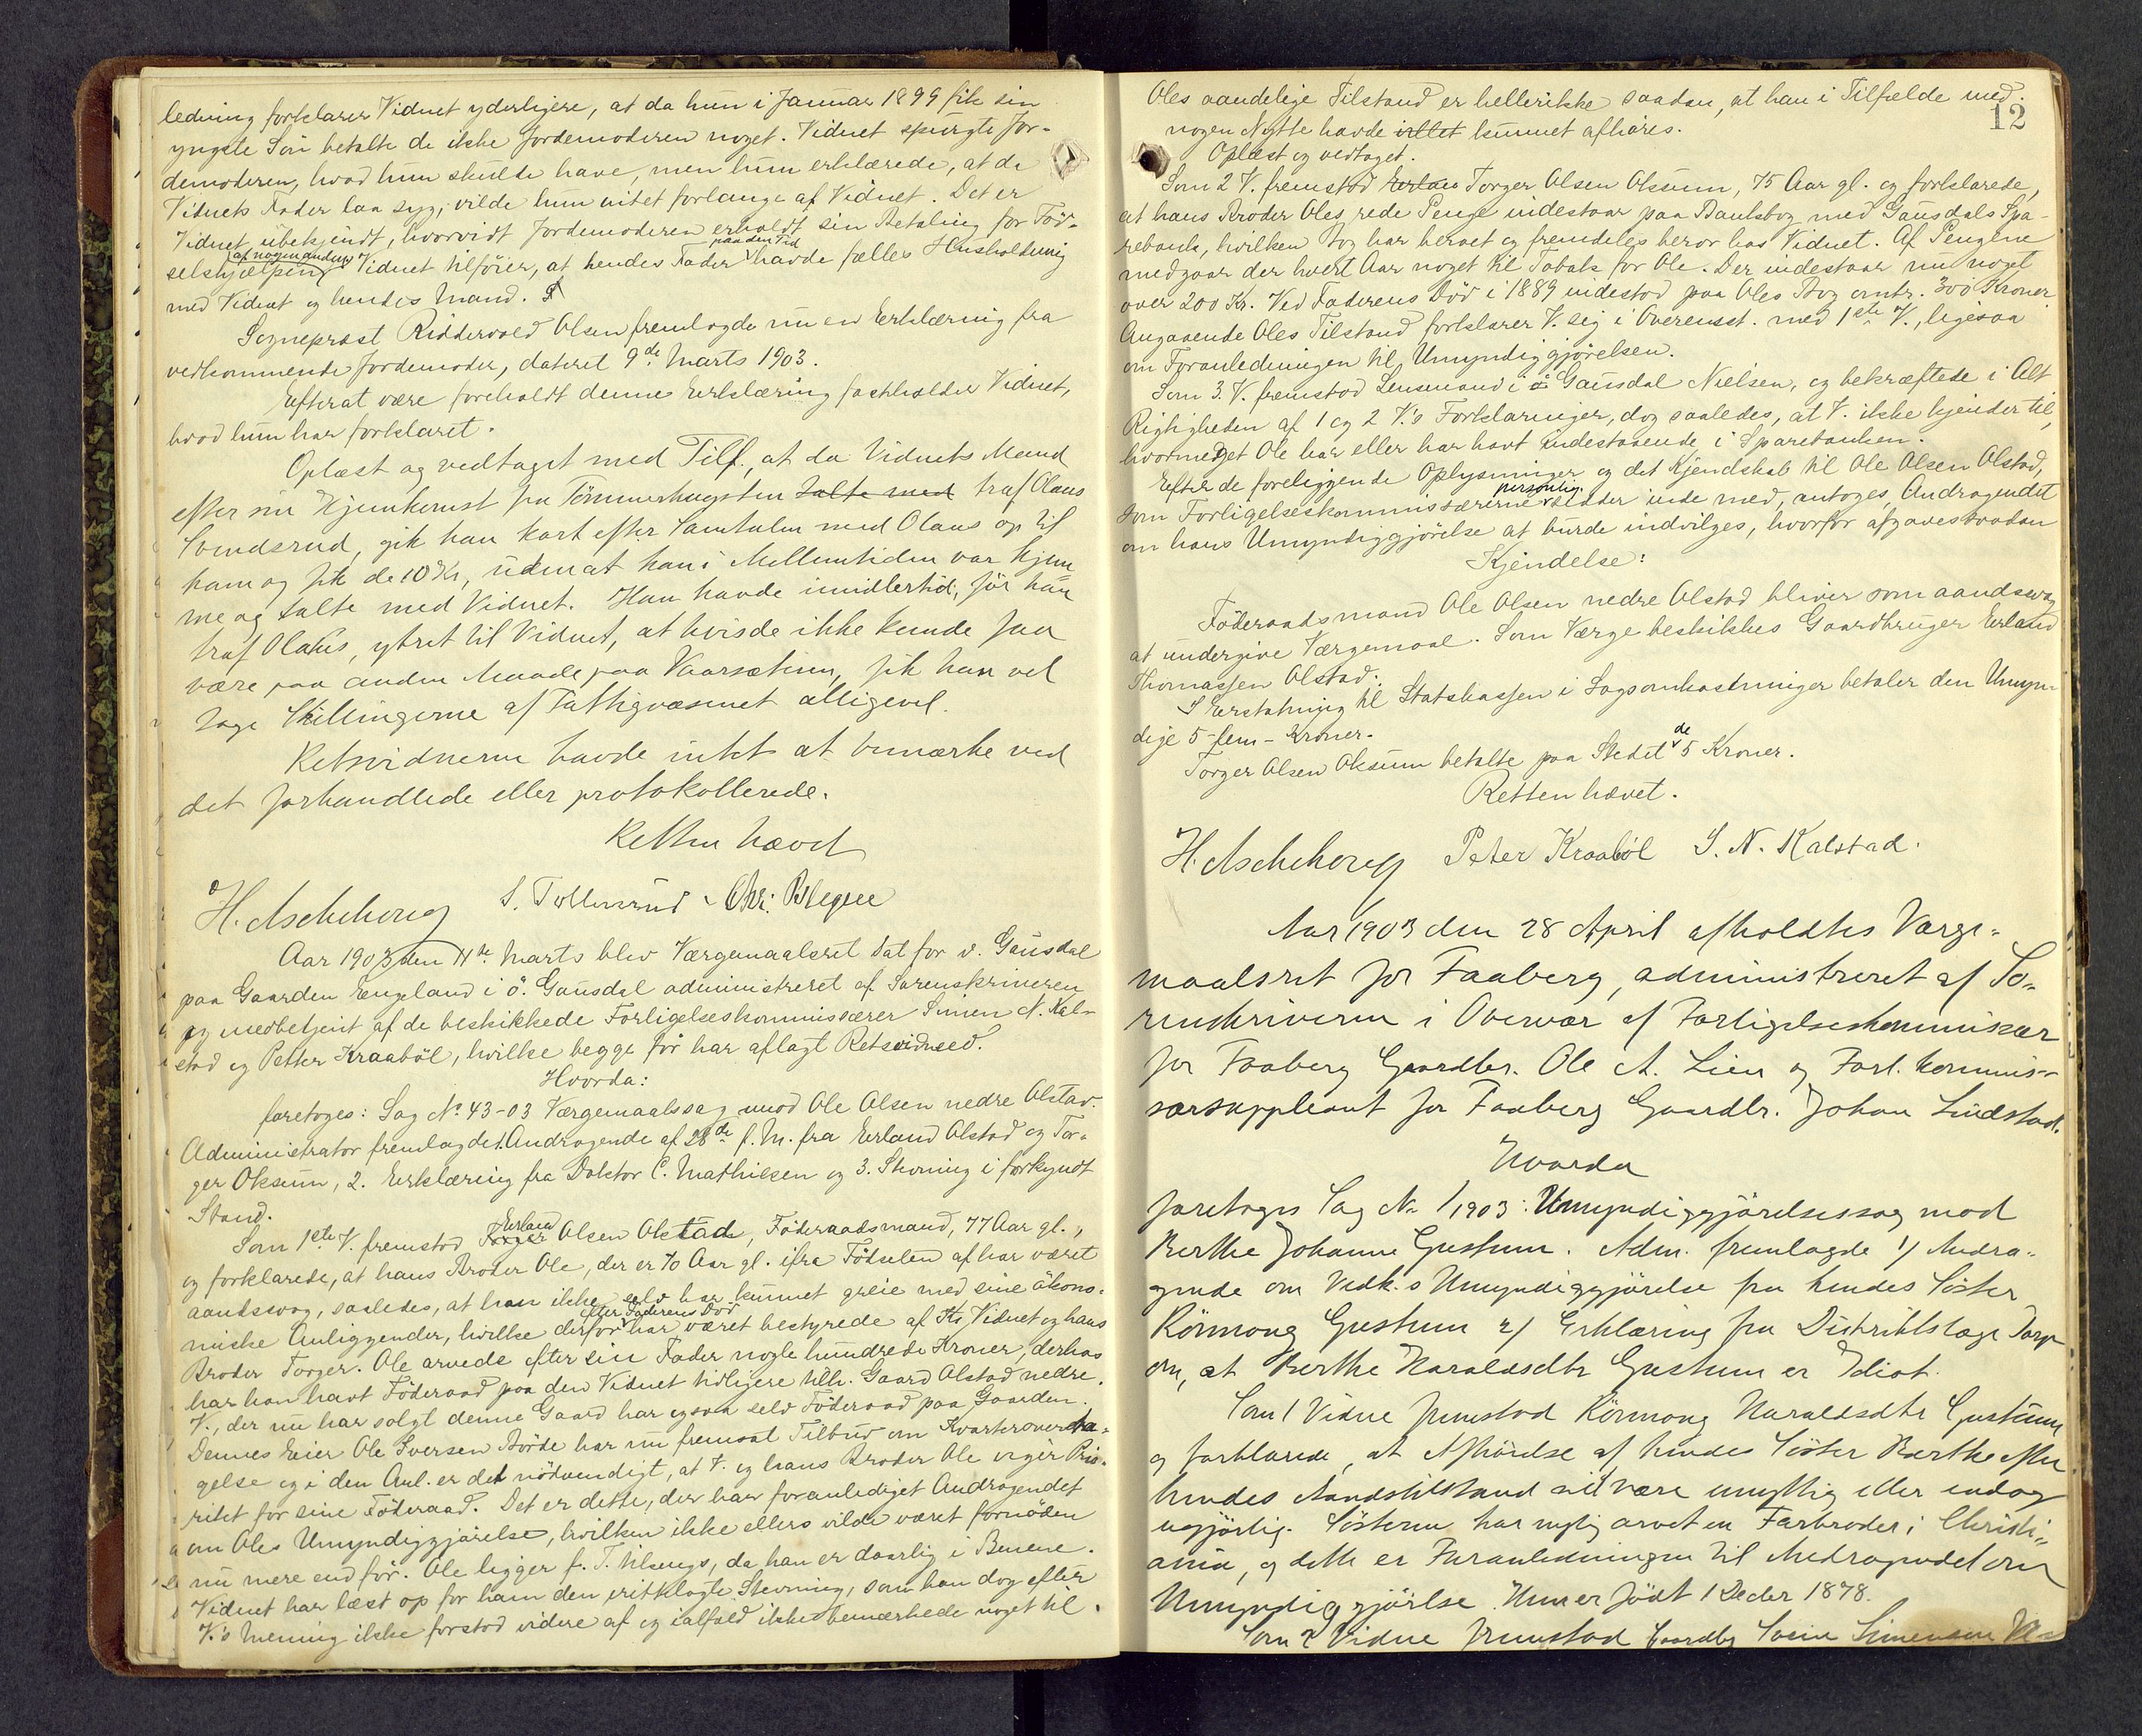 ledning forklarer Vidnet yderligere, at da hun i Januar 1899 fik sin
yngste Søn betalte de ikke Jordemoderen noget. Vidnet spurgte Jor-
demoderen, hvad hun skulde have, men hun erklærede, at da
Vidnets Fader laa syg, vilde hun intet forlange af Vidnet. Det er
Vidnet ubekjendt, hvorvidt Jordemoderen erholdt sin Betaling for Fød-
af nogen anden paa den Tid
selshjælpen. Vidnet tilføier, at hendes Fader havde fælles Husholdning
med Vidnet og hendes Mand.
Sogneprest Riddervold Olsen fremlagde nu en Erklæring fra
vedkommende Jordemoder, dateret 9de Marts 1903.
Efterat være foreholdt denne Erklæring fastholder Vidnet,
hvad hun har forklaret.
Oplæst og vedtaget med Tilf., at da Vidnets Mand
efter sin Hjemkomst fra Tømmerhugsten talte med traf Olaus
Svendsrud, gik han kort efter Samtalen med Olaus op til
ham og fik de 10 Kr, uden at han i Mellemtiden var hjem
me og talte med Vidnet. Han havde imidlertid, før han
traf Olaus, ytret til Vidnet, at hvis de ikke kunde faa
være paa anden Maade paa Vaarsætren, fik han vel
tage Skillingerne af Fattigvæsenet alligevel.
Retsvidnerne havde intet at bemærke ved
det forhandlede eller protokollerede.
Retten hævet
H. Aschehoug S. Tollersrud Chr. Blegen
Aar 1903 den 11te Marts blev Værgemaalsret sat for ø. Gausdal
paa Gaarden Engeland i ø. Gausdal administreret af Sorenskriveren
og medbetjent af de beskikkede Forligelseskommissærer Simen N. Kal-
stad og Petter Kraabøl, hvilke begge før har aflagt Retsvidneed.
Hvorda:
foretoges: Sag No. 43-03 Værgemaalssag mod Ole Olsen nedre Olstad.
Administrator fremlagde 1. Andragende af 28de f. M. fra Erland Olstad og Tor-
ger Oksum, 2. Erklæring fra Doktor C. Mathiesen og 3. Stevning i forkyndt
Stand.
Erland
Som 1ste V. fremstod Torger Olsen Olstad, Føderaadsmand, 77 Aar gl.,
og forklarede, at hans Broder Ole, der er 70 Aar gl. ifra Fødselen af har været
aandssvag, saaledes, at han ikke selv har kunnet greie med sine økono-
efter Faderens Død
miske Anliggender, hvilke derfor har været bestyrede af Vidnet og hans
Broder Torger. Ole arvede efter sin Fader nogle hundrede Kroner, derhos
har han havt Føderaad paa den Vidnet tidligere tilh. Gaard Olstad nedre.
V., der nu har solgt denne Gaard har ogsaa selv Føderaad paa Gaarden.
Dennes Eier Ole Iversen Børde har nu fremsat Tilbud om Kvarterovertta-
gelse og i den Anl. er det nødvendigt, at V. og hans Broder Ole viger Prio-
ritet for sine Føderaad. Det er dette, der har foranlediget Andragendet
om Oles Umyndiggjørelse, hvilken ikke ellers vilde været fornøden
nu mere end før. Ole ligger f. T. tilsengs, da han er daarlig i Benene.
Vidnet har læst op for ham den Stevning, som han dog efter
V.'s Mening ikke forstod videre af og ialfald ikke bemærkede noget til.
12
Oles aandelige Tilstand er hellerikke saadan, at han i Tilfælde med
nogen Nytte havde kunnet afhøres.
Oplæst og vedtaget.
Som 2 V. fremstod Erlan Torger Olsen Oksum, 75 Aar gl. og forklarede,
at hans Broder Oles rede Penge indestaar paa Bankbog med Gausdals Spa-
rebank, hvilken Bog har beroet og fremdeles beror hos Vidnet. Af Pengene
medgaar der hvert Aar noget til Tobak for Ole. Der indestaar nu noget
over 200 Kr. Ved Faderens Død i 1889 indestod paa Oles Bog omtr. 300 Kroner.
Angaaende Oles Tilstand forklarer V. sig i Overensst. med 1ste V., ligesaa
om Foranledningen til Umyndiggjørelsen.
Som 3. V. fremstod Lensmand i ø Gausdal Nielsen, og bekræftede i Alt
Rigtigheden af 1 og 2 V.'s Forklaringer, dog saaledes, at V. ikke kjender til,
hvormeget Ole har eller har havt indestaaende i Sparebanken.
Efter de foreliggende Oplysninger og det Kjendskab til Ole Olsen Olstad,
personlig
som Forligelseskommissærerne sidder inde med, antoges Andragendet
om hans Umyndiggjørelse at burde indvilges, hvorfor afgaves saadan
Kjendelse:
Føderaadsmand Ole Olsen nedre Olstad bliver som aandssvag
at undergive Værgemaal. Som Værge beskikkes Gaardbruger Erland
Thomassen Olstad.
I Erstatning til Statskassen i Sagsomkostninger betaler den Umyn-
dige 5 - fem - Kroner.
de
Torger Olsen Oksum betalte paa Stedet 5 Kroner.
Retten hævet.
H. Aschehoug Peter Kraabøl S. N. Kalstad.
Aar 1903 den 28 April afholdtes Værge-
maalsret for Faaberg, administreret af So-
renskriveren i Overvær af Forligelseskommissær
for Faaberg Gaardbr. Ole A. Lien og Forl. kommis-
særsuppleant for Faaberg Gaardbr. Johan Lindstad.
Hvorda
foretoges Sag No 1/1903: Umyndiggjørelsessag mod
Berthe Johanne Gustum. Adm. fremlagde 1/ Andra-
gende om Vedk.s Umyndiggjørelse fra hendes Søster
Rønnong Gustum 2/ Erklæring fra Distriktslæge Torp
om, at Berthe Haraldsdtr Gustum er Idiot.
Som 1 Vidne fremstod Rønnong Haraldsdtr Gustum
og forklarede, at Afhørelse af hendes Søster Berthe efter
hendes Aandstilstand vil være unyttig eller endog
ugjørlig. Søsteren har nylig arvet en Farbroder i Christi-
ania, og dette er Foranledningen til Andragendet om
Umyndiggjørelse. Hun er født 1 Decbr 1878.
Som 2 Vidne fremstod Gaardbr Svein Simensen